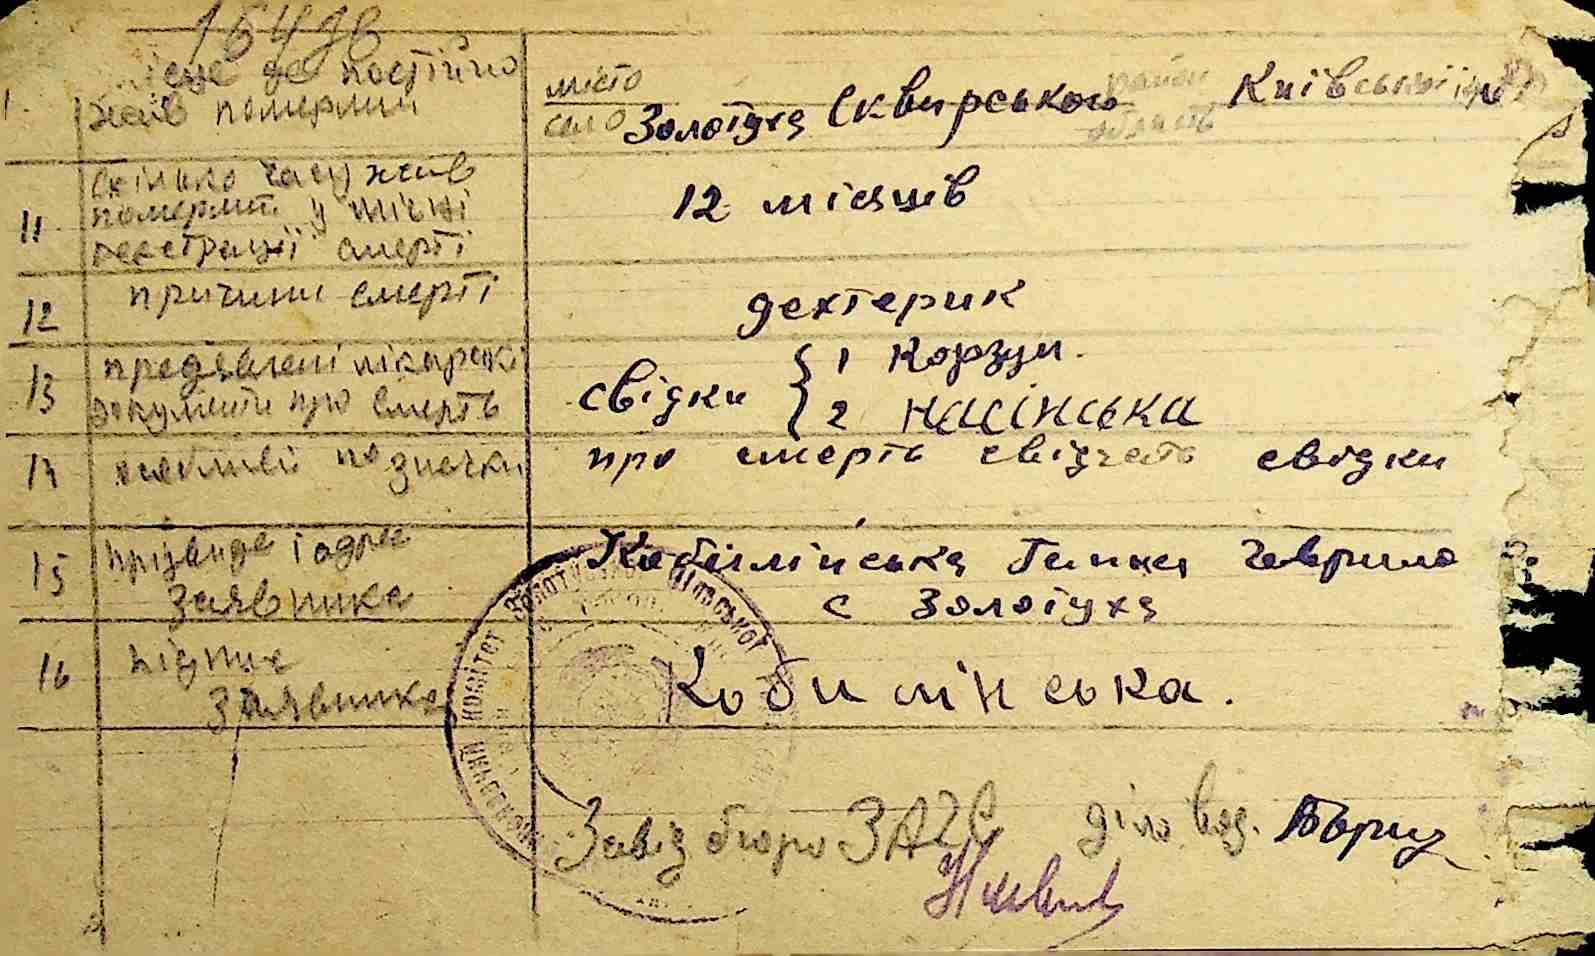 місце де постійно
жив померлий
місто
село Золотуха Сквирського район Київської
область
11 скілько часу жив
померший у місті
реєстрації смерті
12 місяців
12 причини смерті
дехтерик
13 предявлені лікарські
документи про смерть
свідки { 1 Корзун.
2 Насінська
особливі позначки
про смерть свідчать свідки
15 прізвище і адрес
заявника
Кобилінська Гапка Гаврило
с Золотуха
16 підпис
заявника
Кобилінська.
Завід бюро ЗАГС діловод.